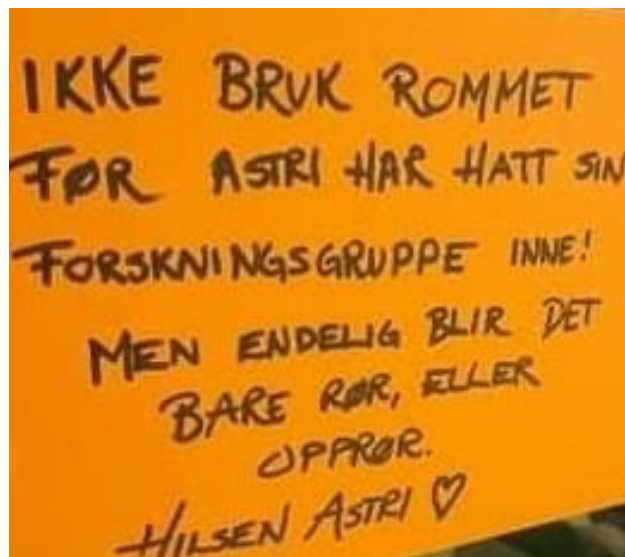 IKKE BRUK ROMMET
FØR ASTRI HAR HATT SIN
FORSKNINGSGRUPPE INNE!
MEN ENDELIG BLIR DET
BARE RØR, ELLER
OPPRØR.
HILSEN ASTRI ♡